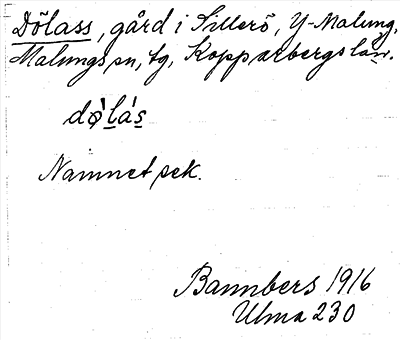 Dölass, gård i Sillerö, Y-Malung,
Malungs sn, tg, Kopparbergs län.
dø̀lás
Namnet sek.
Bannbers 1916
Ulma 230